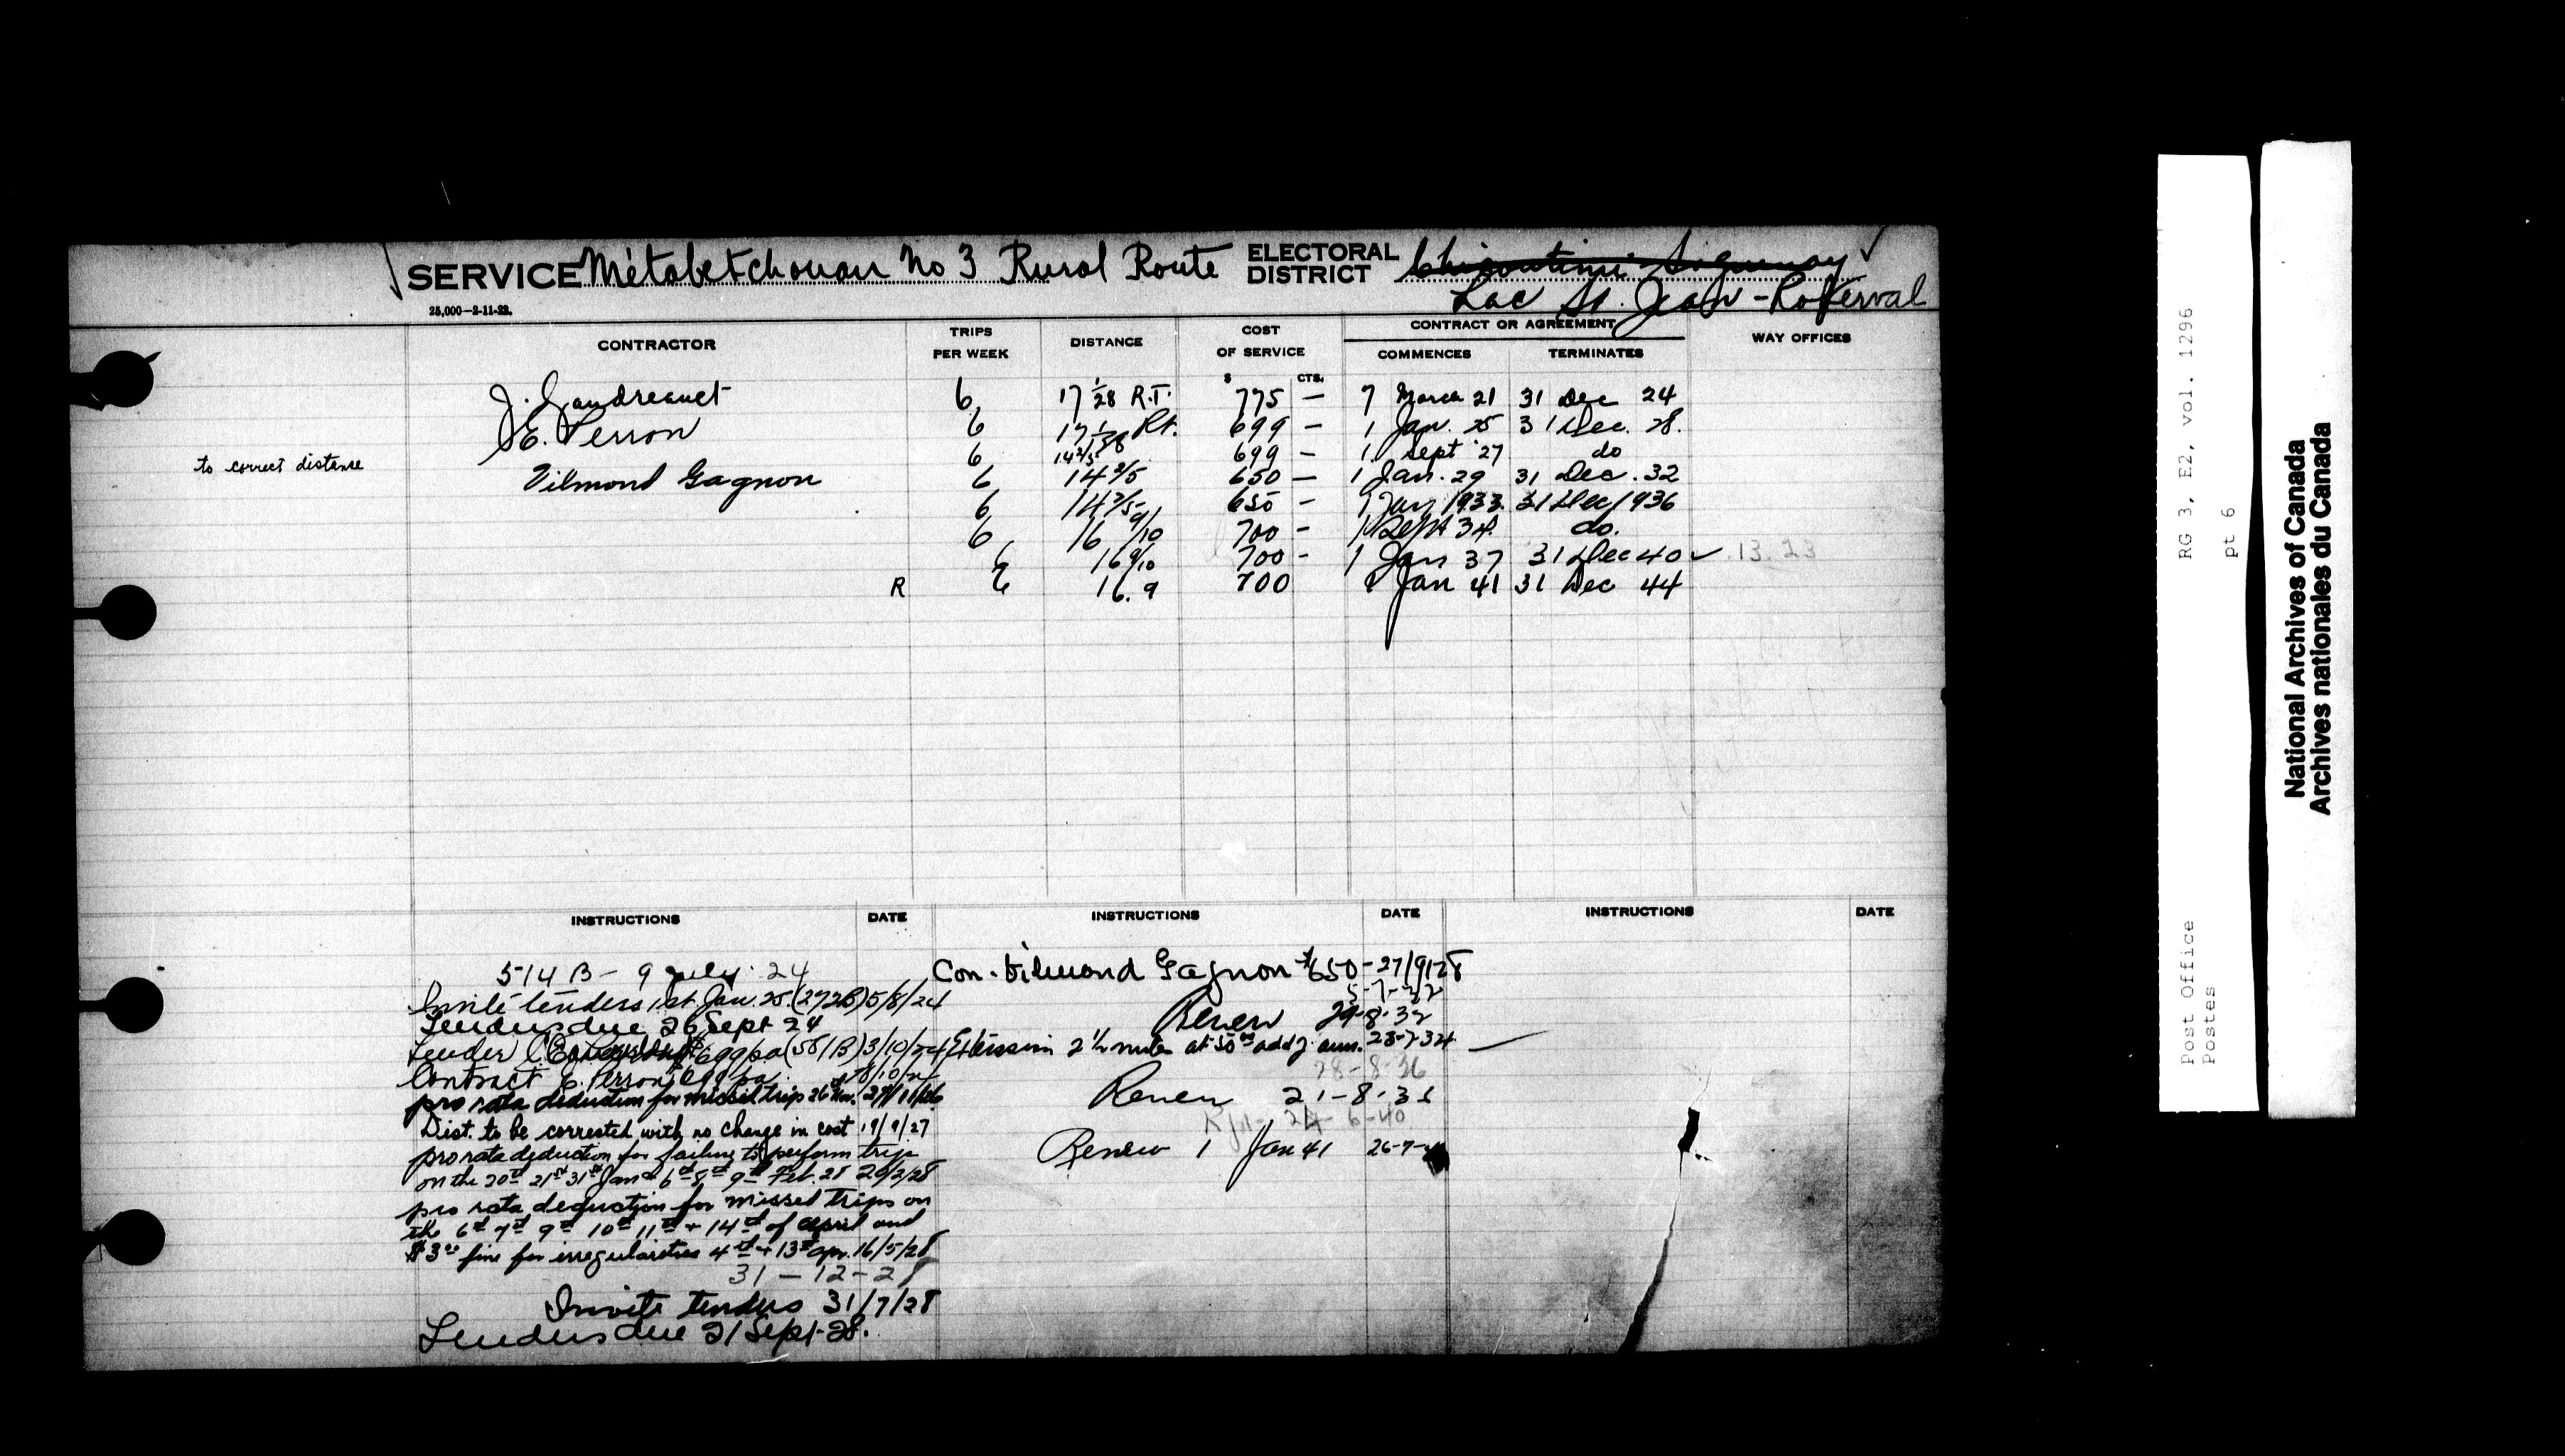 SERVICE Métabetchouan No 3 Rural Route ELECTORAL DISTRICT Chicoutimi-Saguenay
Lac St. Jean - Roberval
25,000-2-11-22.
CONTRACTOR TRIPS PER WEEK DISTANCE COST OF SERVICE CONTRACT OR AGREEMENT COMMENCES TERMINATES WAY OFFICES
$ CTS.
J. Gaudreault 6 17 1/28 R.T. 775 — 7 March 21 31 Dec 24
E. Perron 6 17 1/28 Rt. 699 — 1 Jan. 25 31 Dec. 28.
to correct distance 6 14 2/5 699 — 1 Sept '27 do
Vilmond Gagnon 6 14 2/5 650 — 1 Jan. 29 31 Dec. 32
6 14 2/5 650 - 1 Jan 1933. 31 Dec 1936
6 16 9/10 700 - 1 Sept 34. do.
6 16 9/10 700 - 1 Jan 37 31 Dec 40 13.23
R 6 16.9 700 1 Jan 41 31 Dec 44
INSTRUCTIONS DATE INSTRUCTIONS DATE INSTRUCTIONS DATE
514 B - 9 July. 24
Invite tenders 1st Jan. 25 (272B) 5/8/24
Tenders due 26 Sept 24
Tender 699 pa (581B) 3/10/24
Contract E. Perron 699 pa.
pro rata deduction for missed trip 26 Nov. 29/11/26
Dist. to be corrected with no change in cost 19/9/27
pro rata deduction for failing to perform trip
on the 20th 21st 31st Jan & 6th 8th 9th Feb. 28 20/2/28
pro rata deduction for missed trips on
the 6th 7th 9th 10th 11th + 14th of april and
$3.00 fine for irregularities 4th + 13th apr. 16/5/28
31 - 12 - 28
Invite tenders 31/7/28
Tenders due 21 Sept-28.
Con. Vilmond Gagnon $650 - 27/9/28
5-7-32
Renew 29-8-32
Extension 2 1/2 miles at 50.00 add'l ann. 28-7-34
28-8-36
Renew 21-8-36
24-6-40
Renew 1 Jan 41 26-7-
RG 3, E2, vol. 1296
pt 6
Post Office
Postes
National Archives of Canada
Archives nationales du Canada